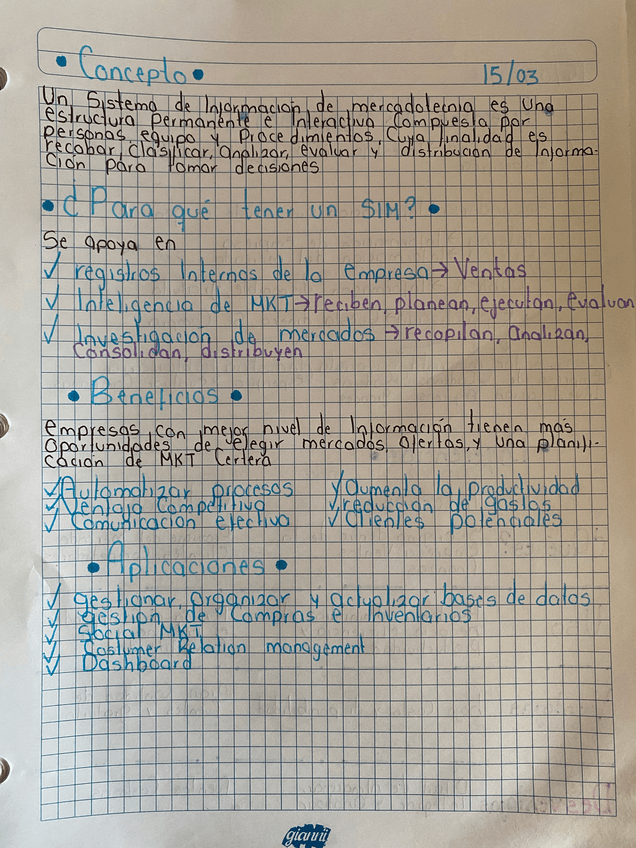 • Concepto •
15/03
Un Sistema de Informacion de mercadotecnia es una
estructura Permanente e Interactiva Compuesta por
personas equipo y Procedimientos, Cuya finalidad es
recabar, clasificar, analizar, evaluar y distribucion de Informa-
ción para tomar decisiones
• ¿Para qué tener un SIM? •
Se apoya en
✓ registros Internos de la empresa → Ventas
✓ Inteligencia de MKT → reciben, planean, ejecutan, evaluan
✓ Investigacion de mercados → recopilan, analizan,
Consolidan, distribuyen
• Beneficios •
empresas con mejor nivel de Información tienen más
Oportunidades de elegir mercados, Ofertas, y una planifi-
cación de MKT Certera
✓ Automatizar procesos ✓ Aumenta la productividad
✓ Ventaja Competitiva ✓ reducción de gastos
✓ Comunicacion efectiva ✓ Clientes potenciales
• Aplicaciones •
✓ gestionar, organizar y actualizar bases de datos
✓ gestion de Compras e Inventarios
✓ Social MKT
✓ Costumer Relation management
✓ Dashboard
gianni